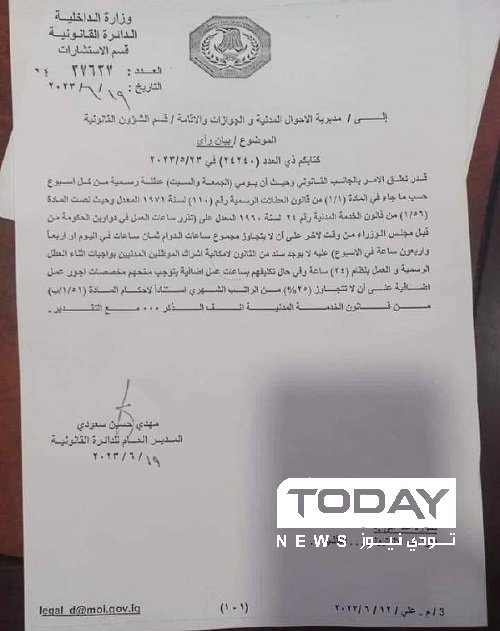 وزارة الداخلية
الدائرة القانونية
قسم الاستشارات
العدد : ٣٧٦٣٧
التاريخ : ١٩/ ٦ /٢٠٢٣
إلى / مديرية الاحوال المدنية و الجوازات والاقامة / قسم الشؤون القانونية
الموضوع / بيان رأي
كتابكم ذي العدد (٢٤٢٤٠) في ٢٠٢٣/٥/٢٣
قدر تعلق الامر بالجانب القانوني وحيث أن يومي (الجمعة والسبت) عطلة رسمية من كل اسبوع
حسب ما جاء في المادة (١/١) من قانون العطلات الرسمية رقم (١١٠) لسنة ١٩٧٢ المعدل وحيث نصت المادة
(١/٥٦) من قانون الخدمة المدنية رقم ٢٤ لسنة ١٩٦٠ المعدل على (تقرر ساعات العمل في دواوين الحكومة من
قبل مجلس الوزراء من وقت لآخر على أن لا يتجاوز مجموع ساعات الدوام ثمان ساعات في اليوم او اربعاً
واربعون ساعة في الاسبوع) عليه لا يوجد سند من القانون لامكانية اشراك الموظفين المدنيين بواجبات اثناء العطل
الرسمية و العمل بنظام (٢٤) ساعة وفي حال تكليفهم بساعات عمل اضافية يتوجب منحهم مخصصات اجور عمل
اضافية على أن لا تتجاوز (٢٥%) من الراتب الشهري استناداً لاحكام المادة (١/٥١/ب)
من قانون الخدمة المدنية انف الذكر ٠٠٠ مع التقدير .
مهدي حسين سعودي
المدير العام للدائرة القانونية
١٩/ ٦ /٢٠٢٣
TODAY
NEWS تودي نيوز
legal_d@moi.gov.iq
(١ - ١)
3 / م . علي / ١٢ /٦ /٢٠٢٣